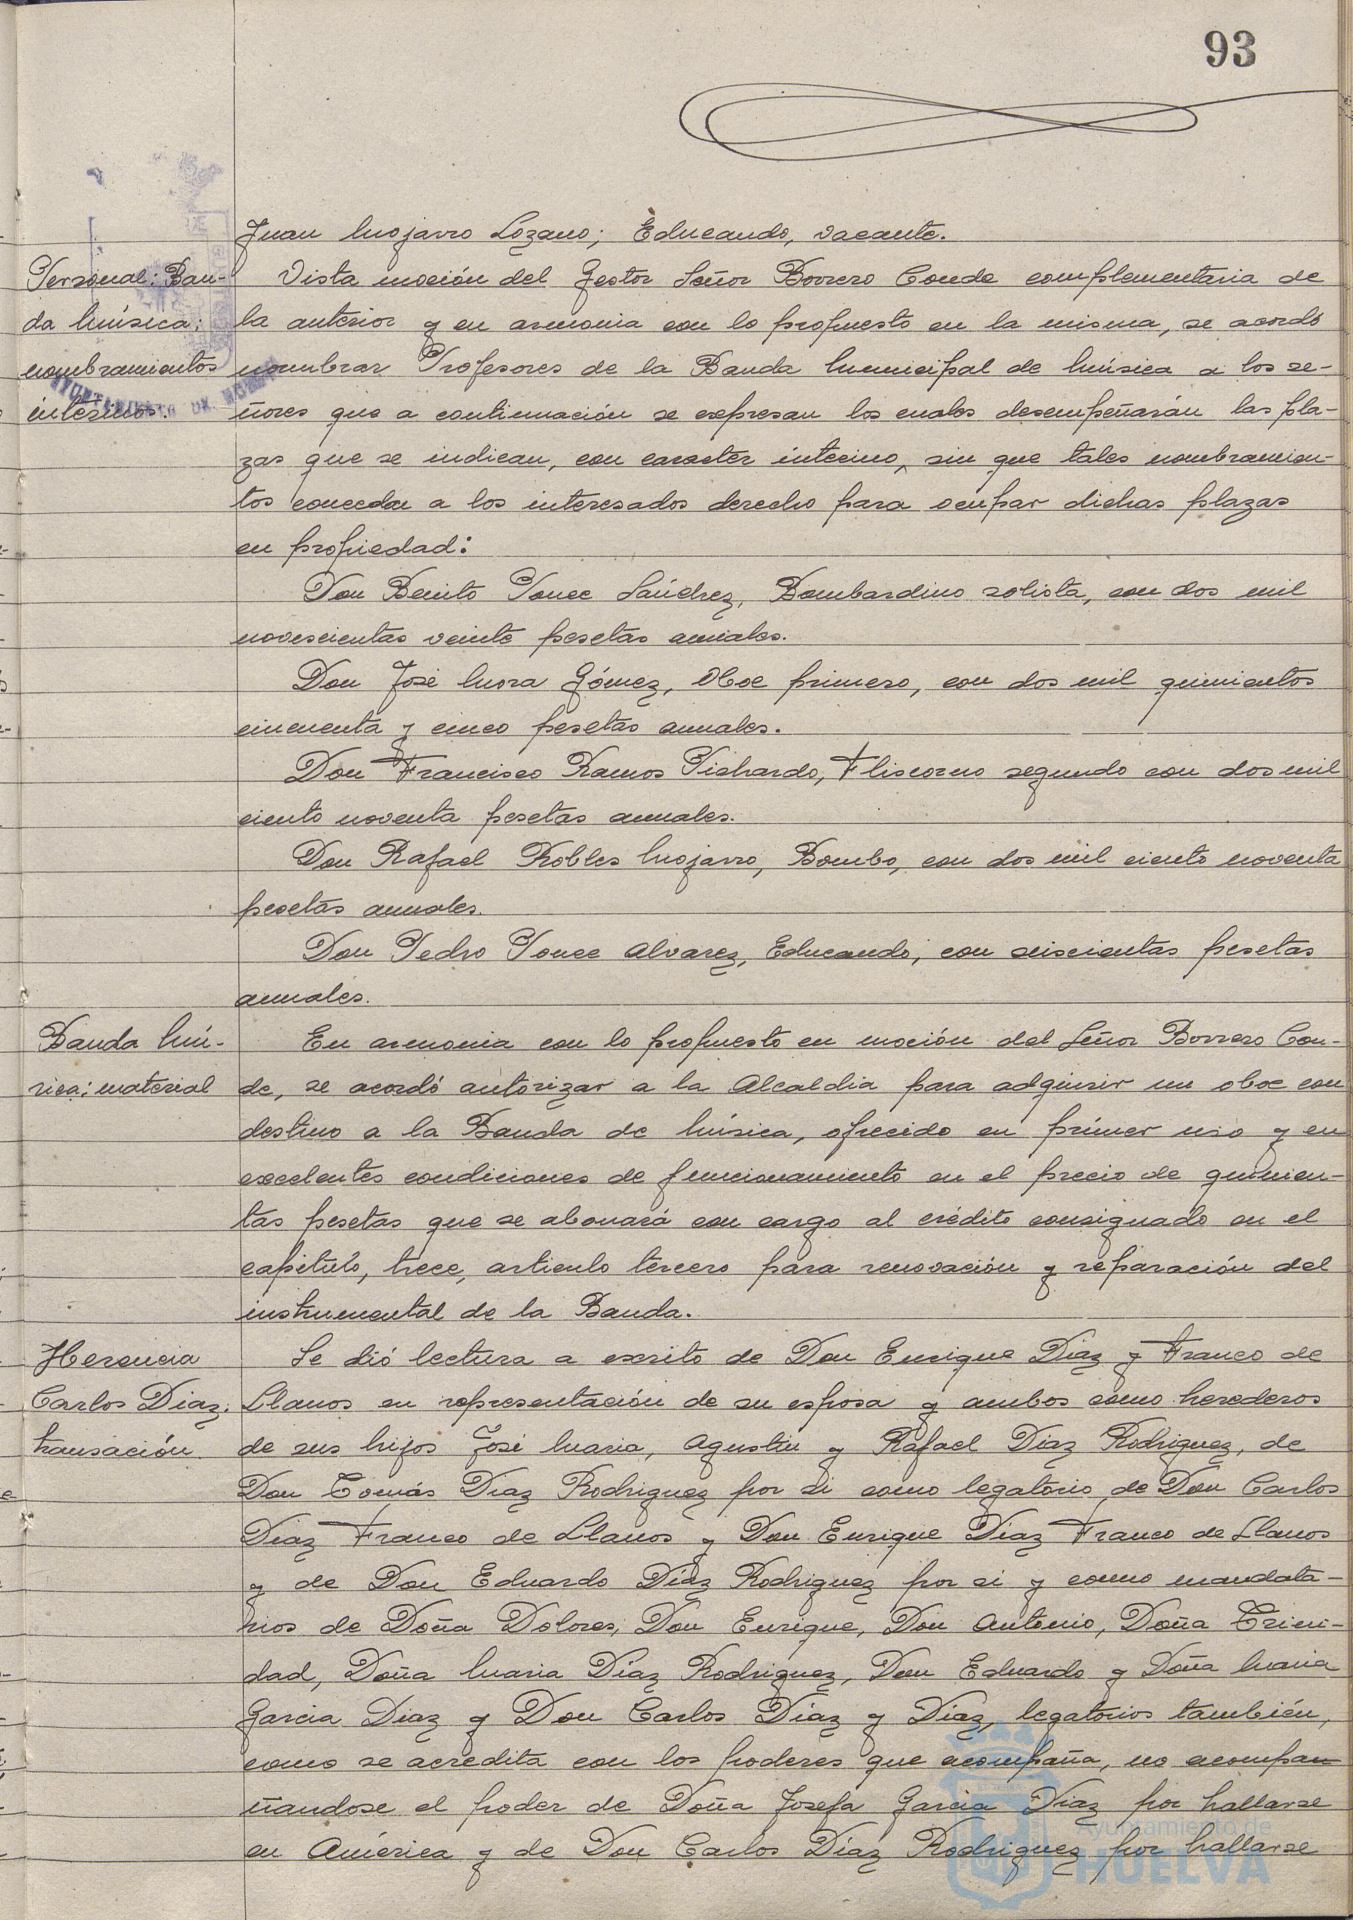 93
Juan Mojarro Lozano; Educando, vacante.
Personal: Ban-
da Música;
nombramientos
interinos.
Vista moción del Gestor Señor Borrero Conde complementaria de
la anterior y en armonia con lo propuesto en la misma, se acordó
nombrar Profesores de la Banda Municipal de Música a los se-
ñores que a continuación se expresan los cuales desempeñarán las pla-
zas que se indican, con caracter interino, sin que tales nombramien-
tos concedan a los interesados derecho para ocupar dichas plazas
en propiedad:
Don Benito Ponce Sánchez, Bombardino solista, con dos mil
novescientas veinte pesetas anuales.
Don José Mora Gómez, Oboe primero, con dos mil quinientos
cincuenta y cinco pesetas anuales.
Don Francisco Ramos Pichardo, Fliscorno segundo con dos mil
ciento noventa pesetas anuales.
Don Rafael Robles Mojarro, Bombo, con dos mil ciento noventa
pesetas anuales.
Don Pedro Ponce Alvarez, Educando, con seiscientas pesetas
anuales.
Banda Mú-
sica; material
En armonia con lo propuesto en moción del Señor Borrero Con-
de, se acordó autorizar a la Alcaldia para adquirir un oboe con
destino a la Banda de Música, ofrecido en primer uso y en
excelentes condiciones de funcionamiento en el precio de quinien-
tas pesetas que se abonará con cargo al crédito consignado en el
capitulo, trece, articulo tercero para renovación y reparación del
instrumental de la Banda.
Herencia
Carlos Diaz;
transación
Se dió lectura a escrito de Don Enrique Diaz y Franco de
Llanos en representación de su esposa y ambos como herederos
de sus hijos José Maria, Agustin y Rafael Diaz Rodriguez, de
Don Tomás Diaz Rodriguez por si como legatorio de Don Carlos
Diaz Franco de Llanos y Don Enrique Diaz Franco de Llanos
y de Don Eduardo Diaz Rodriguez por si y como mandata-
rios de Doña Dolores, Don Enrique, Don Antonio, Doña Trini-
dad, Doña Maria Diaz Rodriguez, Don Eduardo y Doña Maria
Garcia Diaz y Don Carlos Diaz y Diaz, legatorios también,
como se acredita con los poderes que acompaña, no acompan
ñandose el poder de Doña Josefa Garcia Diaz por hallarse
en América y de Don Carlos Diaz Rodriguez por hallarse
AYUNTAMIENTO DE HUELVA
Ayuntamiento de
HUELVA